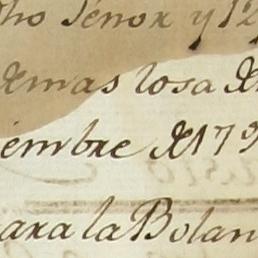 ho Senor y 12
demas losa de
iembre de 179
ara la Bolan